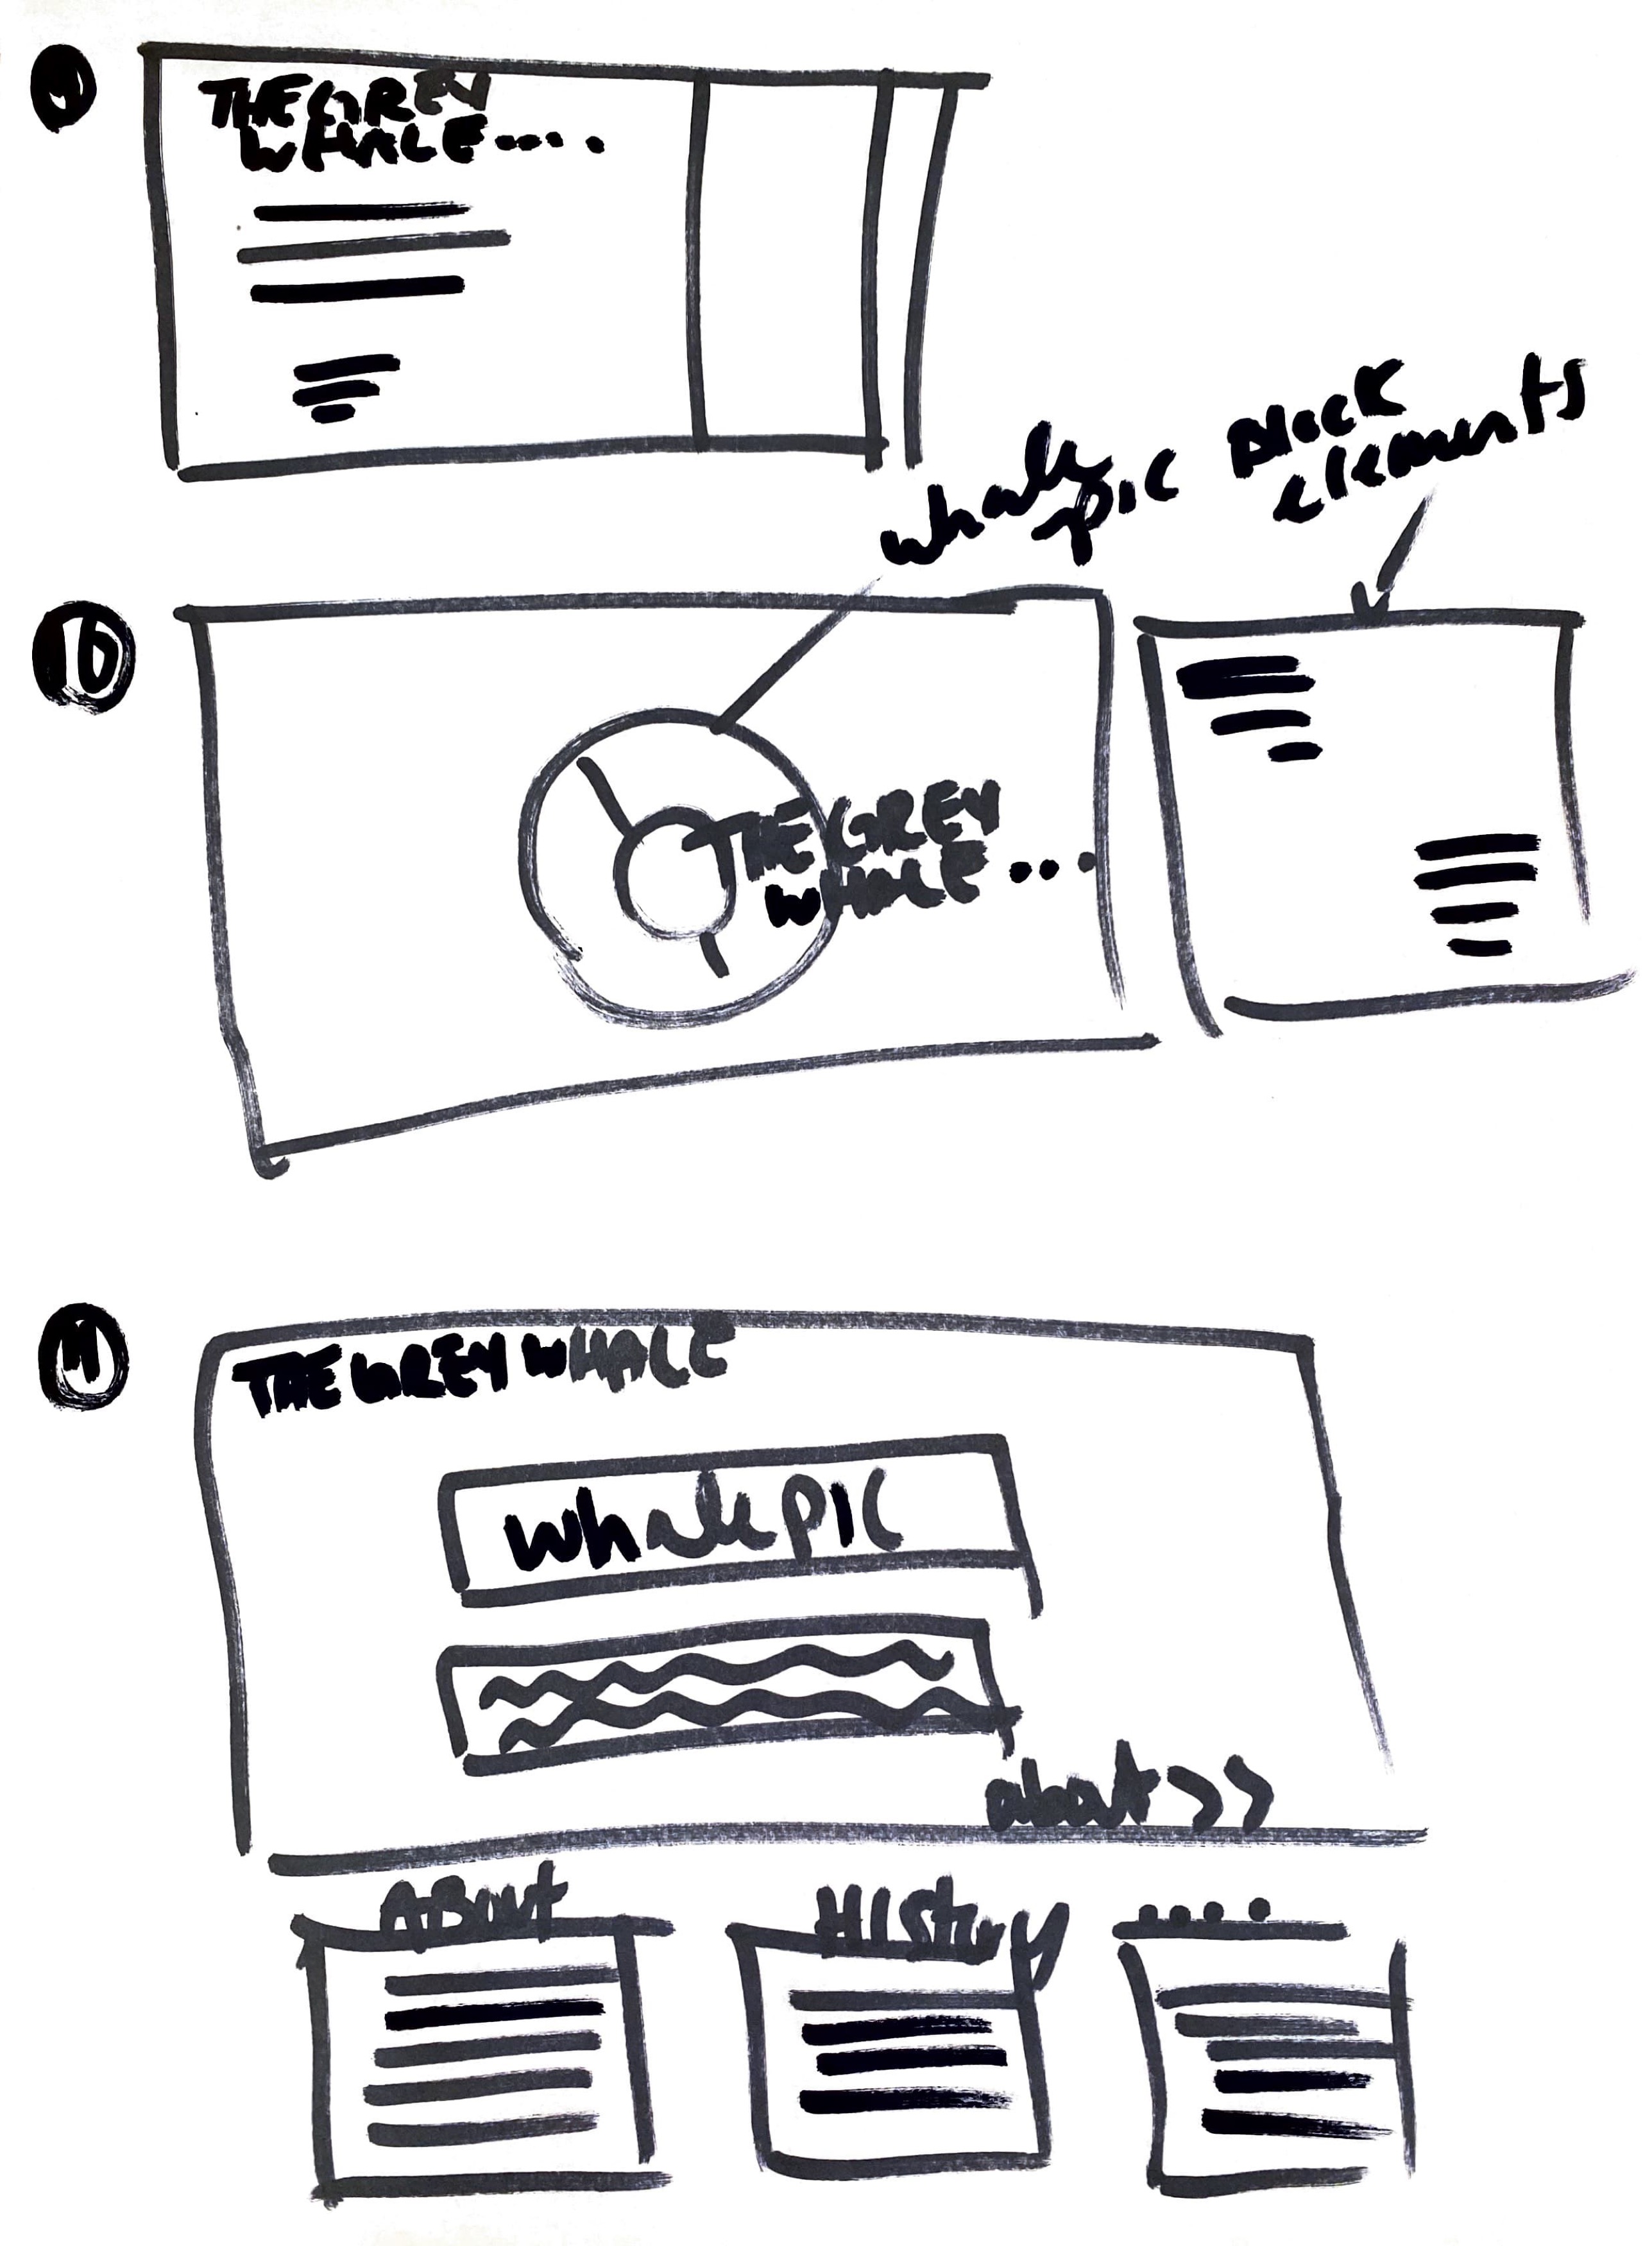 THE GREY
WHALE....
whale
pic
Block
elements
10
THE GREY
WHALE ...
11
THE GREY WHALE
whale pic
about >>
ABOUT
HIStory
....